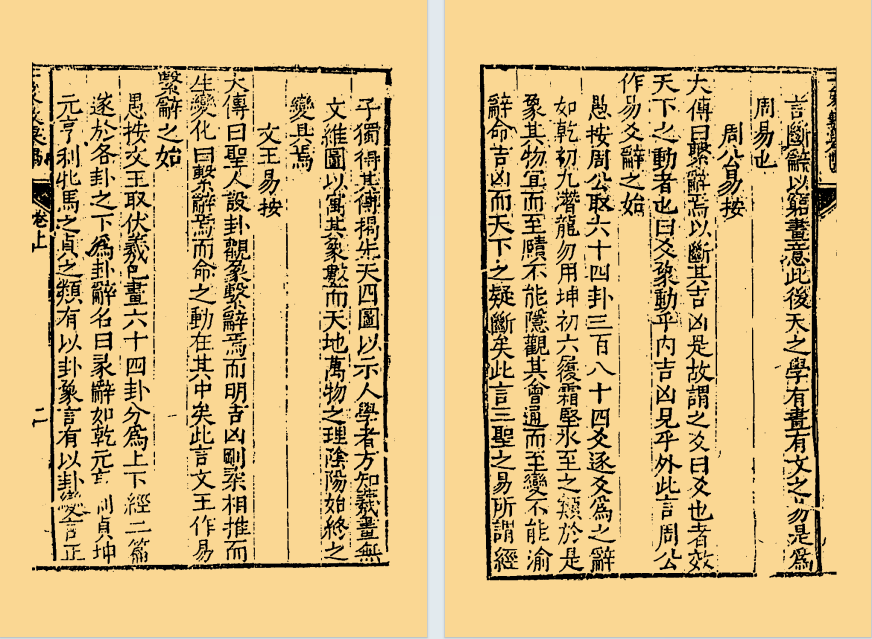 子獨得其傳揭先天四圖以示人學者方知羲畫無
文維圖以寓其象數而天地萬物之理陰陽始終之
變具焉
文王易按
大傳曰聖人設卦觀象繫辭焉而明吉凶剛柔相推而
生變化曰繫辭焉而命之動在其中矣此言文王作易
繫辭之始
愚按文王取伏羲已畫六十四卦分為上下經二篇
遂於各卦之下為卦辭名曰彖辭如乾元亨利貞坤
元亨利牝馬之貞之類有以卦象言有以卦變言正
卷上
二
言斷辭以窮畫意此後天之學有畫有文之易是為
周易也
周公易按
大傳曰繫辭焉以斷其吉凶是故謂之爻曰爻也者效
天下之動者也曰爻象動乎内吉凶見乎外此言周公
作易爻辭之始
愚按周公取六十四卦三百八十四爻逐爻為之辭
如乾初九潛龍勿用坤初六履霜堅氷至之類於是
象其物宜而至賾不能隱觀其會通而至變不能渝
辭命吉凶而天下之疑斷矣此言三聖之易所謂經